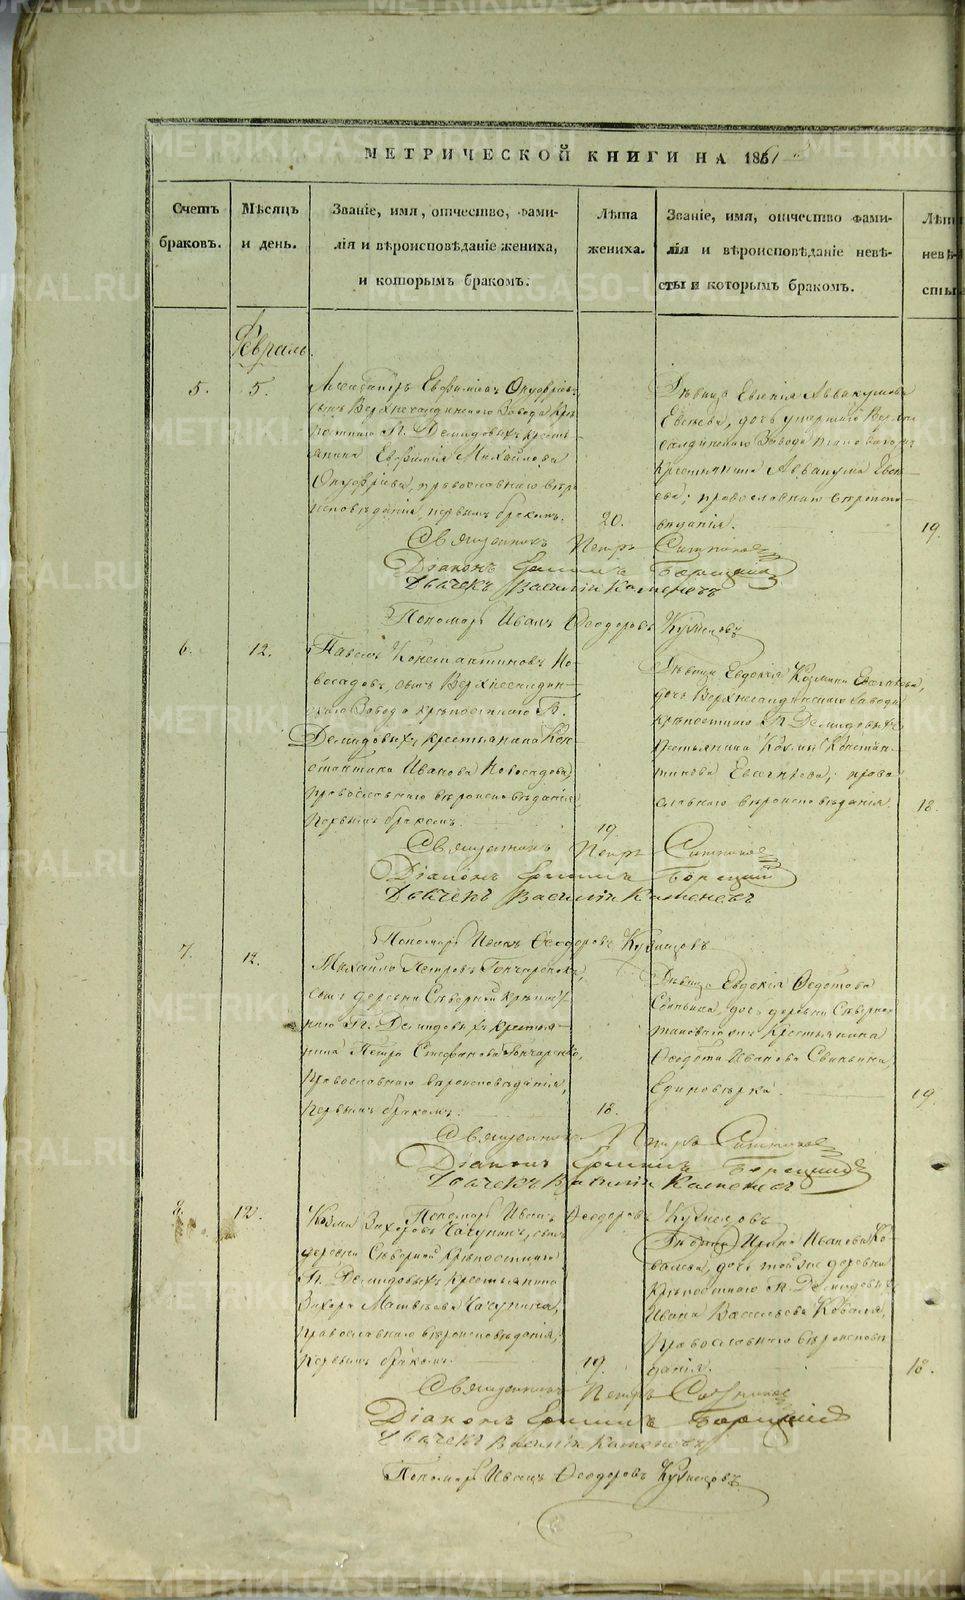 МЕТРИЧЕСКОЙ КНИГИ НА 1861
Счетъ браковъ.
Мѣсяцъ и день.
Званіе, имя, отчество, фами-
лія и вѣроисповѣданіе жениха,
и которымъ бракомъ.
Лѣта жениха.
Званіе, имя, отчество фами-
лія и вѣроисповѣданіе невѣ-
сты и которымъ бракомъ.
Лѣта невѣ-
сты
Февраль.
5.
5.
Евфиміевъ Онуфріевъ,
сынъ Верхнесалдинскаго Завода Крѣ
постнаго Гг. Демидовыхъ крестъ
янина Евфимія Михайлова
Онуфріева, православнаго вѣро
исповѣданія, первымъ бракомъ.
20.
Дѣвица Евгенія Аввакумова
Евсѣева, дочь умершаго Верхне
салдинскаго Завода
Крестьянина Аввакума Евсѣ
ева; православнаго вѣроиспо
вѣданія.
19.
Священникъ Петръ Ситниковъ
Діаконъ
Дьячекъ Василій Каменевъ
Пономарь Иванъ Ѳеодоровъ Кузнецовъ
6.
12.
Павелъ Константиновъ Но
восадовъ, сынъ Верхнесалдин
скаго Завода крѣпостнаго Гг.
Демидовыхъ крестьянина Кон
стантина Иванова Новосадова,
православнаго вѣроисповѣданія
первымъ бракомъ.
19.
Дѣвица Евдокія Козмина
дочь Верхнесалдинскаго Завода
крѣпостнаго Гг. Демидовыхъ
крестьянина Козмы Констан
тинова право
славнаго вѣроисповѣданія.
18.
Священникъ Петръ Ситниковъ
Діаконъ
Дьячекъ Василій Каменевъ
Пономарь Иванъ Ѳеодоровъ Кузнецовъ
7.
12.
Михайло Петровъ Гончаренко,
сынъ деревни Сѣверной крѣпост
наго Гг. Демидовыхъ крестья
нина Петра Стефанова Гончаренко,
православнаго вѣроисповѣданія,
первымъ бракомъ.
18.
Дѣвица Евдокія Ѳедотова
Свинкина, дочь деревни Сѣверной
таковагожъ крестьянина
Ѳеодота Иванова Свинкина,
Единовѣрка.
19.
Священникъ Петръ Ситниковъ
Діаконъ
Дьячекъ Василій Каменевъ
Пономарь Иванъ Ѳеодоровъ Кузнецовъ
8.
12.
Козма Захаровъ Качунинъ, сынъ
деревни Сѣверной крѣпостнаго
Гг. Демидовыхъ крестьянина
Захара Матвѣева Качунина,
православнаго вѣроисповѣданія,
первымъ бракомъ.
19
Дѣвица Ирина Иванова Ко
валева, дочь той же деревни
крѣпостнаго Гг. Демидовыхъ
Ивана Васильева Коваля,
православнаго вѣроисповѣ
данія.
18.
Священникъ Петръ Ситниковъ
Діаконъ
Дьячекъ Василій Каменевъ
Пономарь Иванъ Ѳеодоровъ Кузнецовъ
METRIKI.GASO-URAL.RU